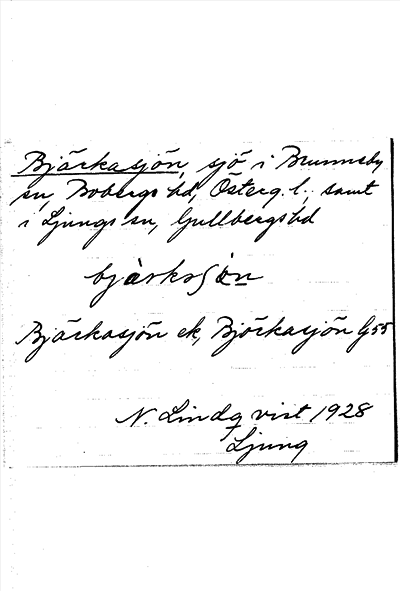 Bjärkasjön, sjö i Brunneby
sn, Bobergs hd, Österg. l., samt
i Ljungs sn, Gullbergs hd
bjärkasjön
Bjärkasjön ek, Björkasjön G55
N. Lindqvist 1928
Ljung